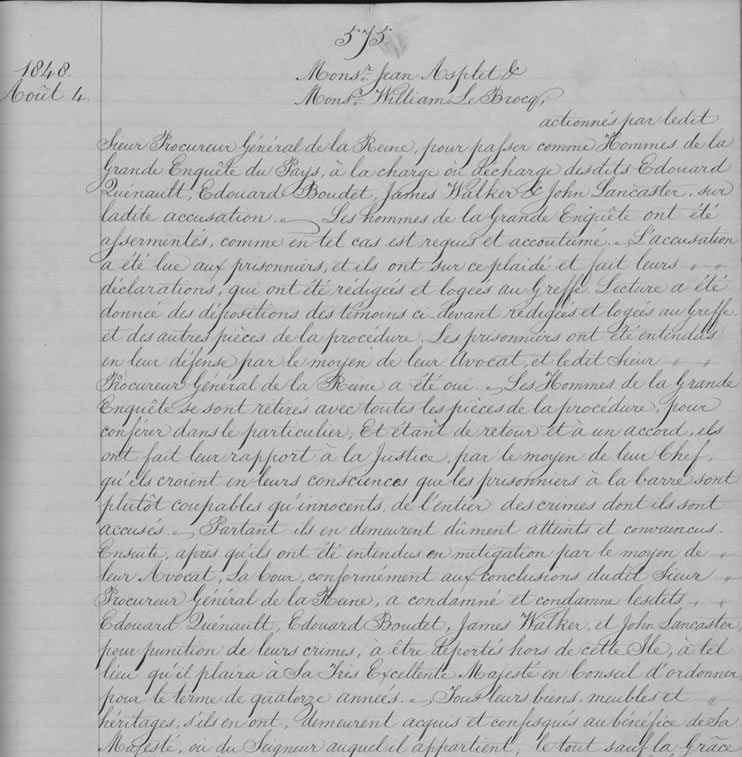 575
1848.
Août 4.
Monsr. Jean Asplet &
Monsr. William Le Brocq,
actionnés par ledit
Sieur Procureur Général de la Reine, pour passer comme Hommes de la
Grande Enquête du Pays, à la charge ou décharge desdits Edouard
Quénault, Edouard Boudet, James Walker & John Lancaster, sur
ladite accusation. Les hommes de la Grande Enquête ont été
assermentés, comme en tel cas est requis et accoutumé. L'accusation
a été lue aux prisonniers, et ils ont sur ce plaidé et fait leurs
déclarations, qui ont été rédigées et logées au Greffe. Lecture a été
donnée des dépositions des témoins ci-devant rédigées et logées au Greffe
et des autres pièces de la procédure. Les prisonniers ont été entendus
en leur défense par le moyen de leur Avocat, et ledit Sieur
Procureur Général de la Reine a été oui. Les Hommes de la Grande
Enquête se sont retirés avec toutes les pièces de la procédure, pour
conférer dans le particulier, Et étant de retour et à un accord, ils
ont fait leur rapport à la Justice, par le moyen de leur Chef,
qu'ils croient en leurs consciences que les prisonniers à la barre sont
plutôt coupables qu'innocents, de l'entier des crimes dont ils sont
accusés. Partant ils en demeurent dûment atteints et convaincus.
Ensuite, après qu'ils ont été entendus en mitigation par le moyen de
leur Avocat, La Cour, conformément aux conclusions dudit Sieur
Procureur Général de la Reine, a condamné et condamne lesdits
Edouard Quénault, Edouard Boudet, James Walker, et John Lancaster,
pour punition de leurs crimes, à être déportés hors de cette Ile, à tel
lieu qu'il plaira à Sa Très Excellente Majesté en Conseil d'ordonner,
pour le terme de quatorze années. Tous leurs biens-meubles et
héritages, s'ils en ont, demeurent acquis et confisqués au bénéfice de Sa
Majesté, ou du Seigneur auquel il appartient, le tout sauf la Grâce